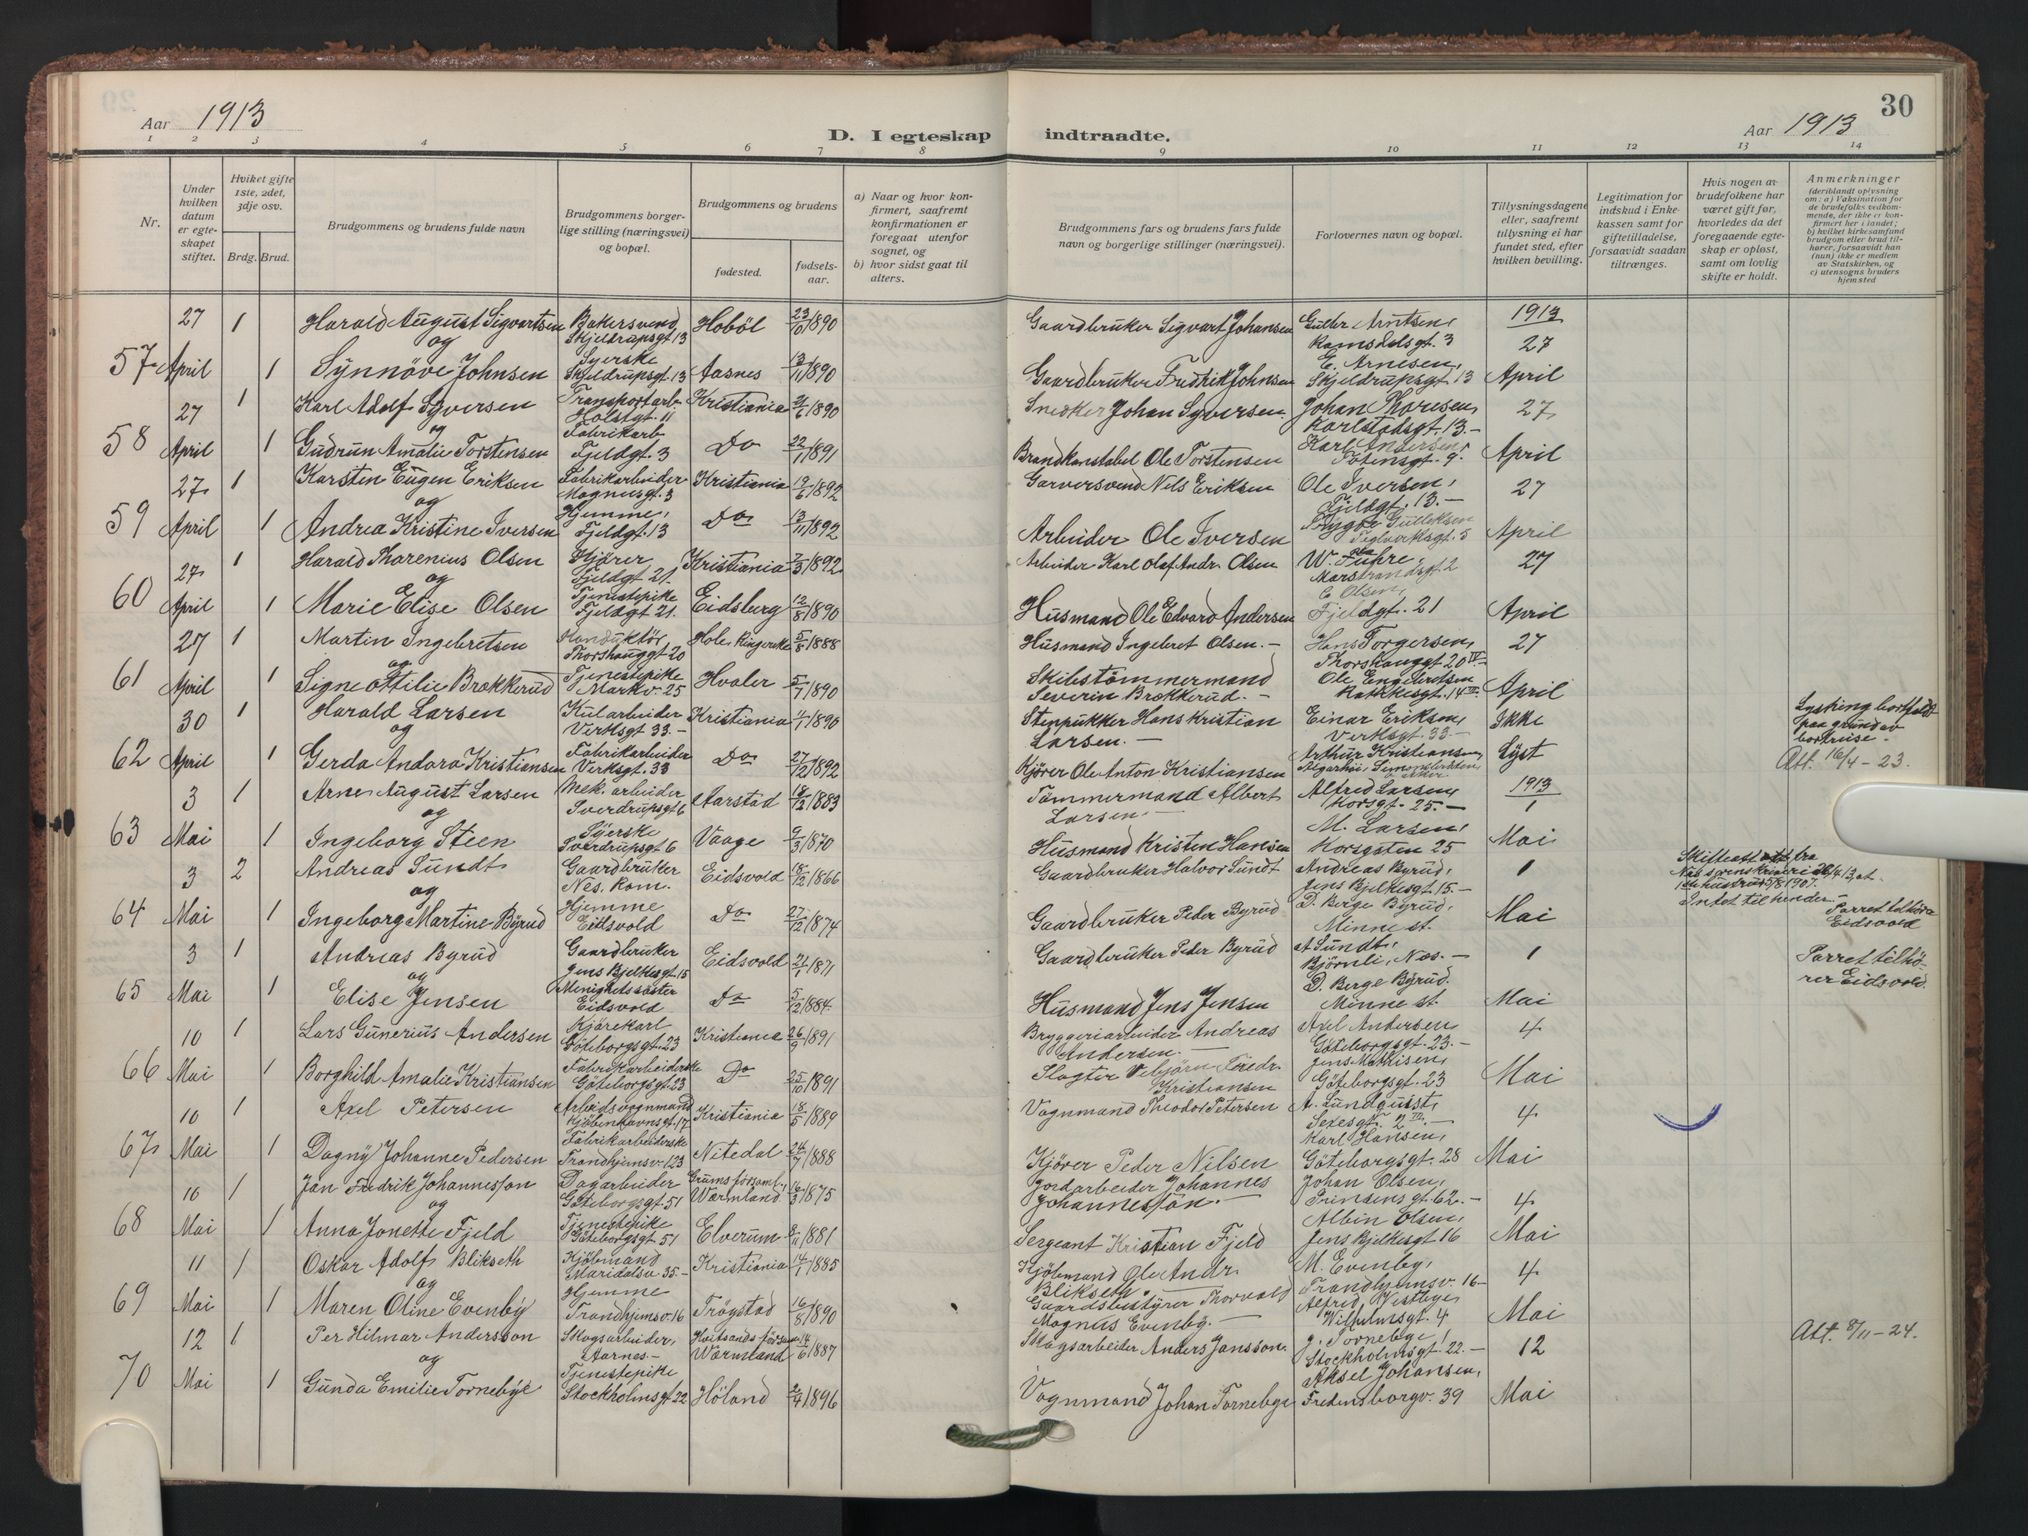 Aar 1913
D. I egteskap indtraadte.
Aar 1913
30
1 2 3 4 5 6 7 8 9 10 11 12 13 14
Nr.
Under hvilken datum er egteskapet stiftet.
Hviket gifte 1ste, 2det, 3dje osv.
Brdg. Brud.
Brudgommens og brudens fulde navn
Brudgommens borgerlige stilling (næringsvei) og bopæl.
Brudgommens og brudens
fødested.
fødselsaar.
a) Naar og hvor konfirmert, saafremt konfirmationen er foregaat utenfor sognet, og
b) hvor sidst gaat til alters.
Brudgommens fars og brudens fars fulde navn og borgerlige stillinger (næringsvei).
Forlovernes navn og bopæl.
Tillysningsdagene eller, saafremt tillysning ei har fundet sted, efter hvilken bevilling.
Legitimation for indskud i Enkekassen samt for giftetilladelse, forsaavidt saadan tiltrænges.
Hvis nogen av brudefolkene har været gift før, hvorledes da det foregaaende egteskap er opløst, samt om lovlig skifte er holdt.
Anmerkninger (deriblandt oplysning om: a) Vaksination for de brudefolks vedkommende, der ikke er konfirmert her i landet; b) hvilket kirkesamfund brudgom eller brud tilhører, forsaavidt han (hun) ikke er medlem av Statskirken, og c) utensogns bruders hjemsted
27 1 Harald August Sigvartsen Bakersvend Skjeldrupsgt 13 Hobøl 23/10 1890 Gaardbruker Sigvart Johansen Guttor Arntsen, Ramsdalsgt. 3 1913 27
og
57 April 1 Synnöve Johnsen Syerske Skjeldrupsgt. 13 Aasnes 13/11 1890 Gaardbruker Fredrik Johnsen E. Arnesen, Skjeldrupsgt 13 April
27 1 Karl Adolf Syversen Transportarb Holstgt. 11 Kristiania 9/6 1890 Snedker Johan Syversen Johan Thoresen, Karlstadsgt. 13.- 27
og
58 April 1 Gudrun Amalie Torstensen Fabrikarb Fjeldgt. 3 Do 22/1 1891 Brandkonstabel Ole Torstensen Karl Andersen, Totensgt. 9. April
27 1 Karsten Eugen Eriksen Fabrikarbeider Magnusgt. 3 Kristiania 19/6 1892 Garversvend Nels Eriksen Ole Iversen, Fjeldgt. 13.- 27
og
59 April 1 Andrea Kristine Iversen Hjemme, Fjeldgt. 13 Do 13/11 1892 Arbeider Ole Iversen Trygve Gulliksen Teglverksgt. 5 April
27 1 Harald Thorenius Olsen Kjører Fjeldgt 21. Kristiania 7/3 1892 Arbeider Karl Olaf Andr. Olsen W. Fuhre, Marstrandsgt 2 27
og
60 April 1 Marie Elise Olsen Tjenestepike Fjeldgt 21. Eidsberg 12/8 1890 Husmand Ole Edvard Andersen E Olsen, Fjeldgt. 21 April
27 1 Martin Ingebretsen Konduktör Thorshauggt 20 Hole Ringerike 5/8 1888 Husmand Ingebret Olsen.- Hans Torgersen, Thorshauggt 20 IV- 27
og
61 April 1 Signe Ottilie Brækkerud Tjenestepike Markv. 25 Hvaler 5/7 1890 Skibstömmermand Severin Brækkerud.- Ole Engebretsen Rathkesgt. 14 III. April
30 1 Harald Larsen Kularbeider Verksgt. 33.- Kristiania 4/1 1890 Stenpukker Hans Kristian Larsen.- Einar Eriksen, Verksgt. 33.- Ikke Lysning bortfaldt paa grund av bortreise.
og
62 April 1 Gerda Andora Kristiansen Fabrikarbeider Verksgt. 33 Do 27/12 1892 Kjører Ole Anton Kristiansen Arthur Kristiansen, Lyst Att. 16/4 - 23.
3 1 Arne August Larsen Mek. arbeider Sverdrupsgt 6 Aarstad 18/12 1883 Tömmermand Albert Larsen.- Alfred Larsen, Korsgt. 25.- 1913 1
og
63 Mai 1 Ingeborg Steen Syerske Sverdrupsgt 6 Vaage 9/3 1870 Husmand Kristen Hansen M. Larsen, Korsgaten 25 Mai
3 2 Andreas Sundt Gaardbruker Nes. kom. Eidsvold 18/12 1866 Gaardbruker Halvor Sundt Andreas Byrud, Jens Bjelkesgt. 15.- 1 Skifteatt fra Nes sorenskriveri 26/4 13, at 1ste hustru d 5/8 1907. Intet til hinder.-
og
64 Mai 1 Ingeborg Martine Byrud Hjemme Eidsvold Do 27/12 1874 Gaardbruker Peder Byrud D. Berge Byrud, Minne st. Mai Parret tilhöre Eidsvold
3 1 Andreas Byrud Gaardbruker Jens Bjelkesgt 15 Eidsvold 21/1 1871 Gaardbruker Peder Byrud A Sundt, Björnli, Næs.- 1 Parret tilhörer Eidsvold.
og
65 Mai 1 Elise Jensen Menighetssöster Eidsvold Do 5/12 1884. Husmand Jens Jensen D. Berge Byrud. Minne st. Mai
10 1 Lars Gunerius Andersen Kjörekarl Göteborgsgt. 23 Kristiania 26/9 1891 Bryggeriarbeider Andreas Andersen.- Axel Andersen Göteborgsgt. 23.- 4
66 Mai 1 Borghild Amalie Kristiansen Fabrikarbeiderske Göteborgsgt. 23 Do 25/10 1891 Slagter Vebjörn Fredr. Kristiansen Jens Mathisen, Göteborgsgt. 23 Mai
10 1 Axel Petersen Arbeidsvognmand Kjöbenhavnsgt. 17 Kristiania 18/5 1889 Vognmand Theodor Petersen A. Lundquist, Sexesgt. 2 III.- 4
67 Mai 1 Dagny Johanne Pedersen Fabrikarbeiderske Trondhjemsv. 123 Nitedal 24/7 1888 Kjører Peder Nilsen Karl Hansen, Göteborgsgt. 28 Mai
10 1 Jan Fredrik Johannesson Dagarbeider Göteborgsgt 51 Grums forsaml., Wärmland 16/3 1875 Jordarbeider Johannes Johannesson.- Johan Olsen, Prinsens gt. 62.- 4
og
68 Mai 1 Anna Jonette Fjeld Tjenestepike Göteborgsgt. 51 Elverum 9/11 1881 Sergeant Kristian Fjeld Albin Olsen, Jens Bjelkesgt 16 Mai
11 1 Oskar Adolf Blikseth Kjöbmand Maridalsv. 35- Kristiania 14/1 1885 Kjöbmand Ole Andr. Blikseth.- M. Evenby, Trondhjemsv. 16- 4
og
69 Mai 1 Maren Oline Evenby Hjemme Trondhjemsv. 16 Trøgstad 16/8 1890 Gaardsbestyrer Thorvald Magnus Evenby.- Alfred Westbye, Wilhelmsgt. 4 Mai
12 1 Per Hilmar Andersson Skogsarbeider, Aarnes- Hvitsands förs Wärmland 14/6 1887 Skogsarbeider Anders Jansson. J. Tornebye! Stockholmsgt. 22.- 12 Att. 8/11 - 24.
og
70 Mai 1 Gunda Emilie Tornebye Tjenestepike Stockholmsgt 22 Høland 2/4 1896 Vognmand Johan Tornebye Aksel Johansen, Fredensborgv. 39 Mai